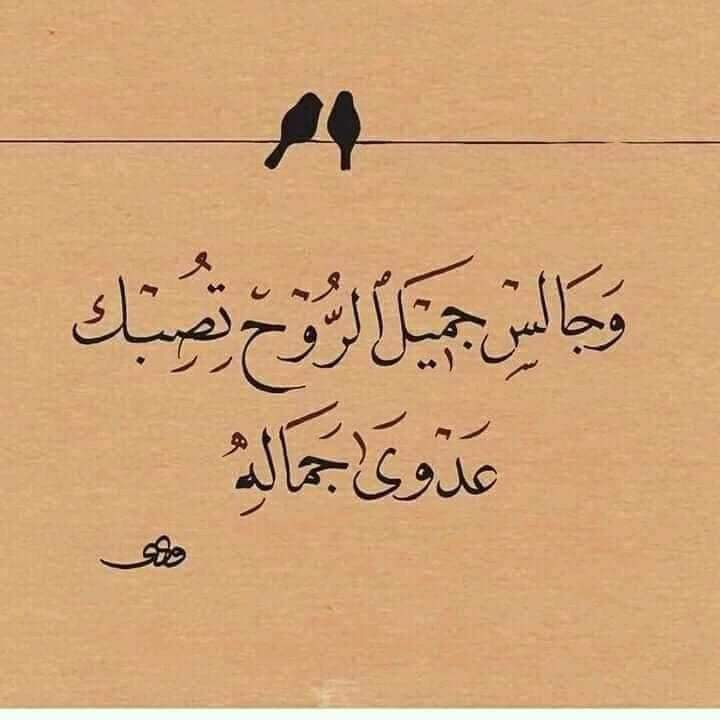 وَجَالِسْ جَمِيْلَ ٱلرُّوْحِ تُصِبْك
عَدْوَىٰ جَمَالِهُ